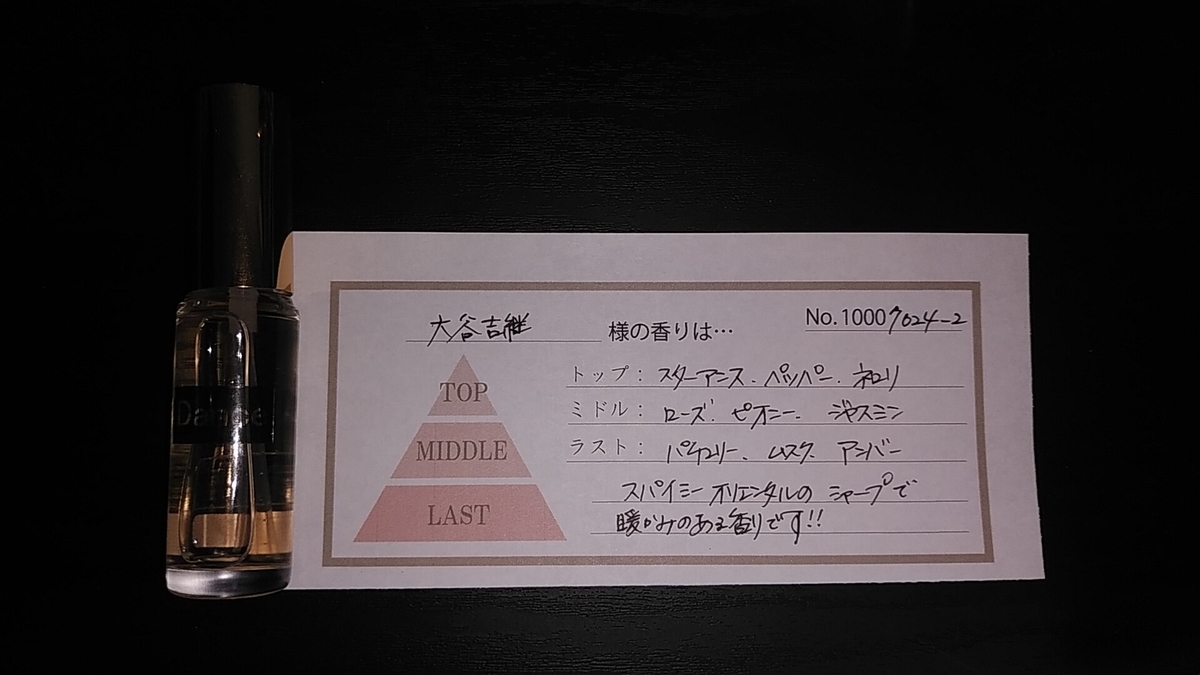 大谷吉継 様の香りは…
No.10007024-2
TOP
MIDDLE
LAST
トップ: スターアニス. ペッパー. ネロリ
ミドル: ローズ. ピオニー. ジャスミン
ラスト: パチュリー、ムスク アンバー
スパイシーオリエンタルの シャープで
暖かみのある香りです!!